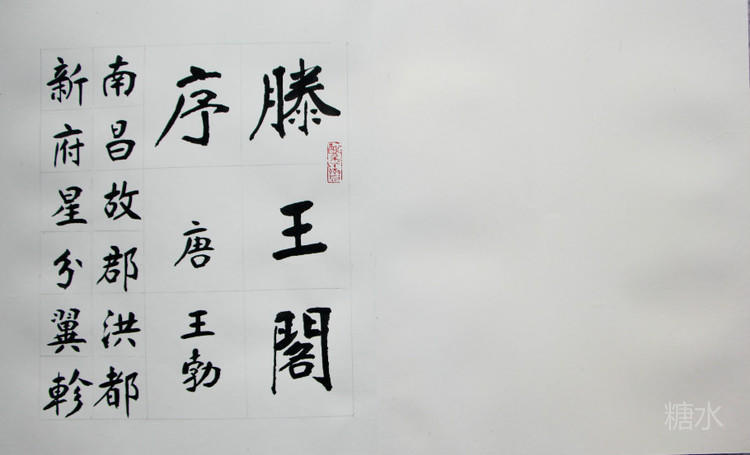 滕王閣
序 唐 王勃
南昌故郡洪都
新府星分翼軫
糖水